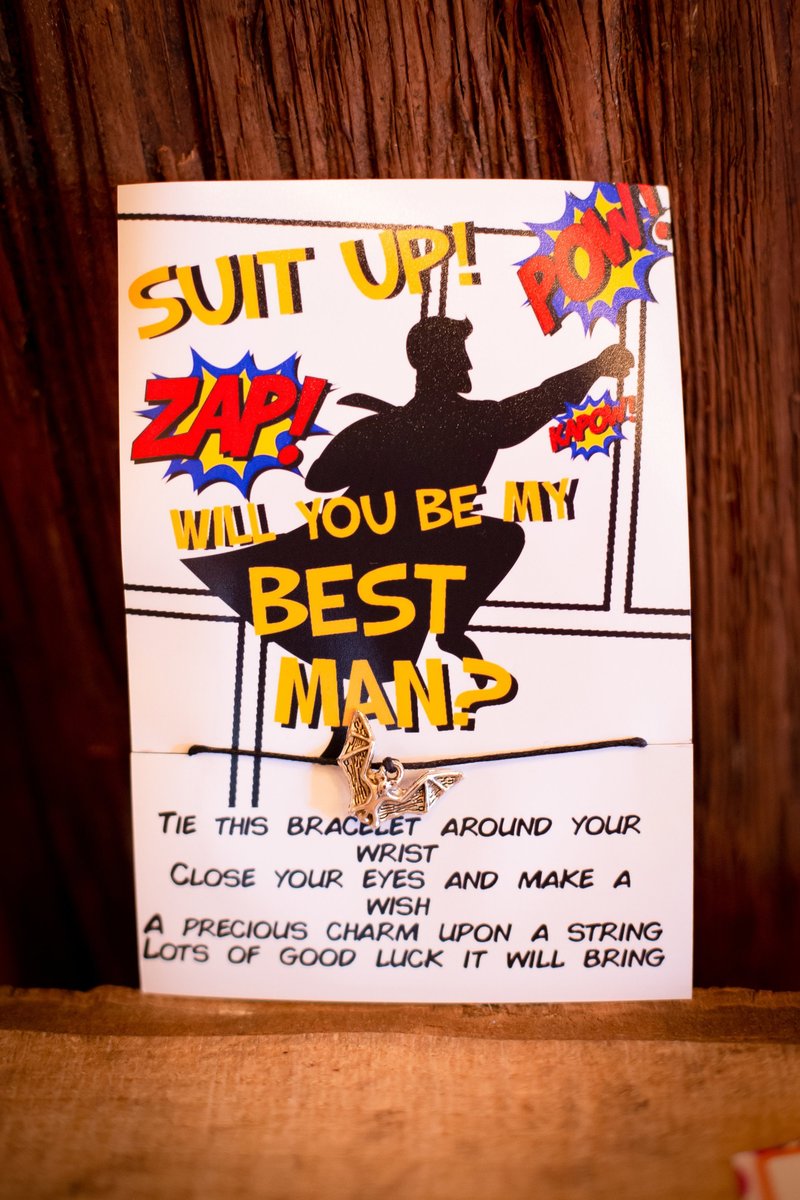 SUIT UP!
POW!!
ZAP!
KAPOW!!
WILL YOU BE MY
BEST
MAN?
TIE THIS BRACELET AROUND YOUR
WRIST
CLOSE YOUR EYES AND MAKE A
WISH
A PRECIOUS CHARM UPON A STRING
LOTS OF GOOD LUCK IT WILL BRING